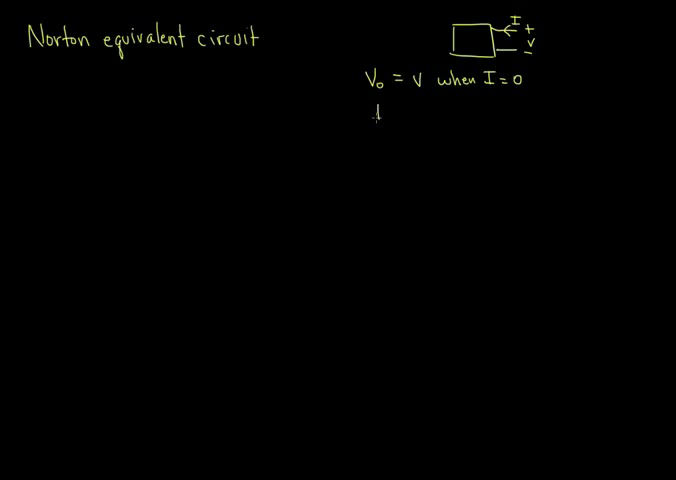 Norton equivalent circuit
I
+
V
-
V₀ = V when I = 0